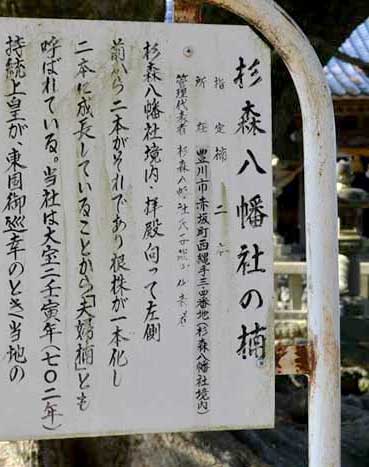 杉森八幡社の楠
指定楠 二本
所在 豊川市赤坂町西縄手三・四番地(杉森八幡社境内)
管理代表者 杉森八幡社氏子
杉森八幡社境内・拝殿向って左側
前から二本がそれであり根株が一本化し
二本に成長していることから「夫婦楠」とも
呼ばれている。当社は大宝二壬寅年(七〇二年)
持統上皇が、東国御巡幸のとき当地の